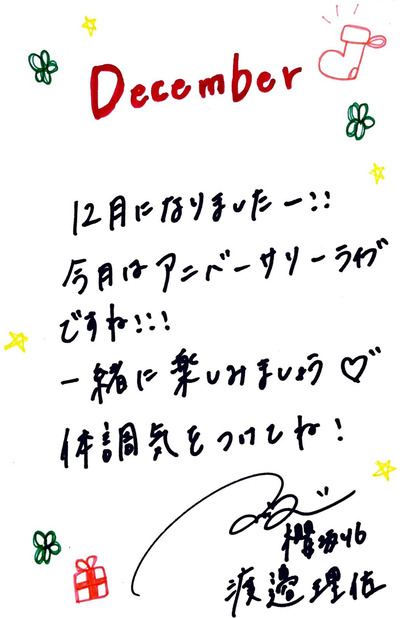 December
12月になりましたー!!
今月はアニバーサリーライブ
ですね!!!
一緒に楽しみましょう♡
体調気をつけてね!
櫻坂46
渡邉理佐